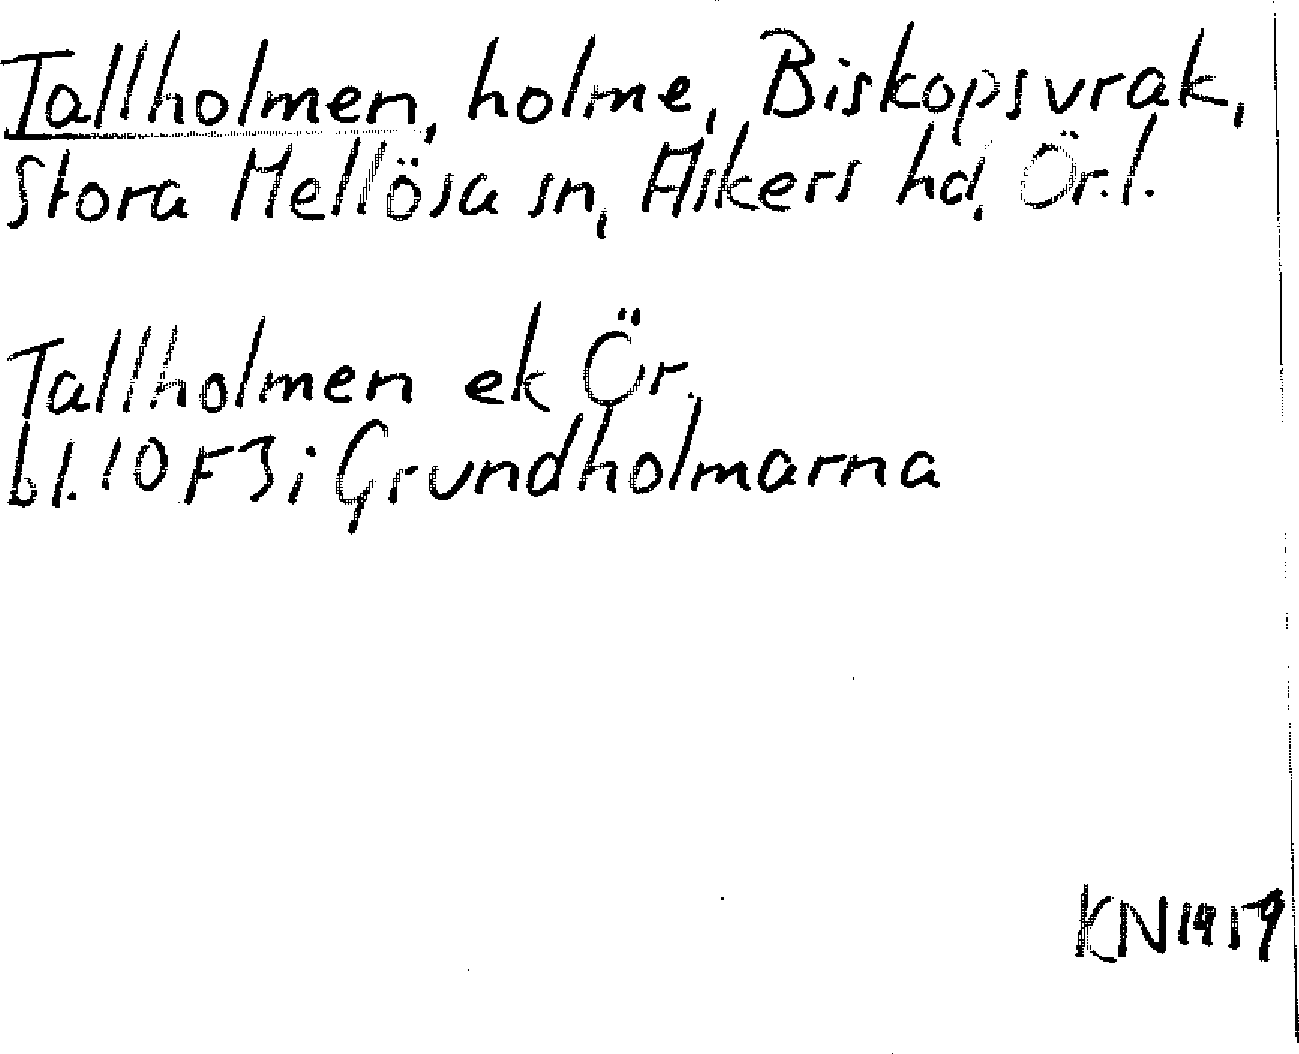 Tallholmen, holme, Biskopsvrak,
Stora Mellösa sn, Askers hd, Ör.l.
Tallholmen ek Ör.
bl. 10 F3 i Grundholmarna
KN 1959